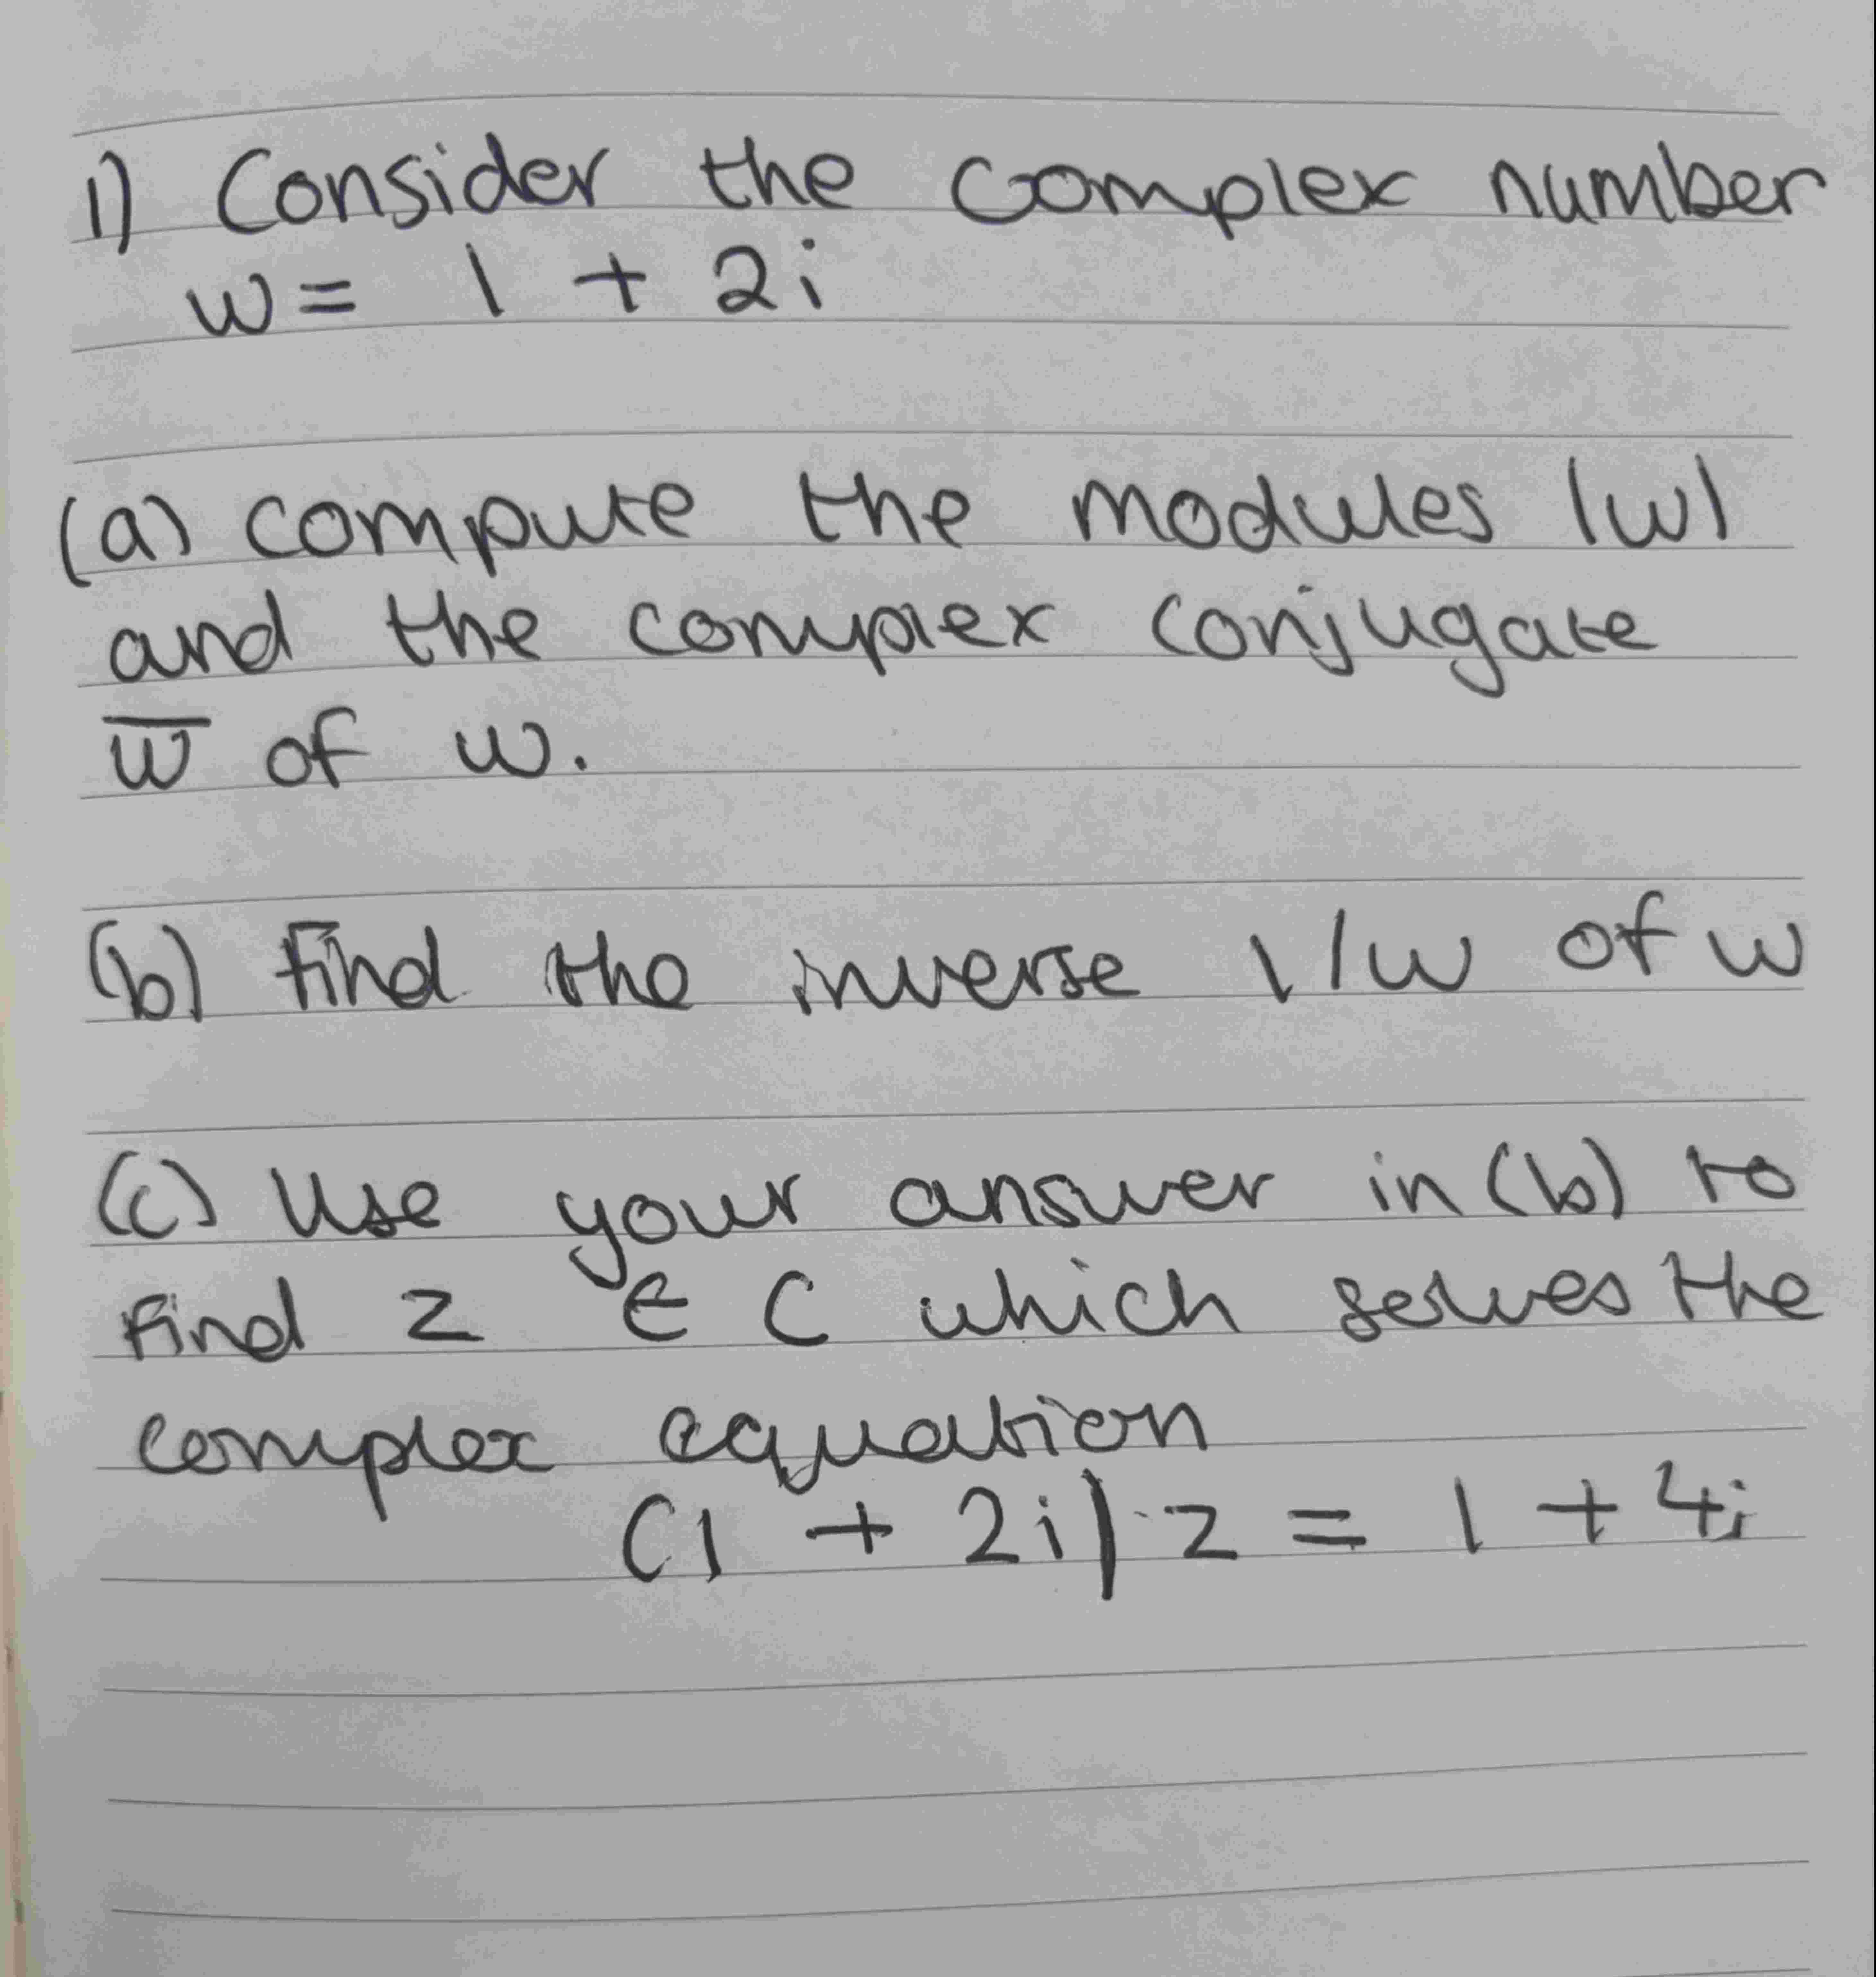 1) Consider the complex number
w = 1 + 2i
(a) compute the modules |w|
and the complex conjugate
w̅ of w.
(b) find the inverse 1/w of w
(c) Use your answer in (b) to
find z ∈ C which solves the
complex equation
(1 + 2i) z = 1 + 4i